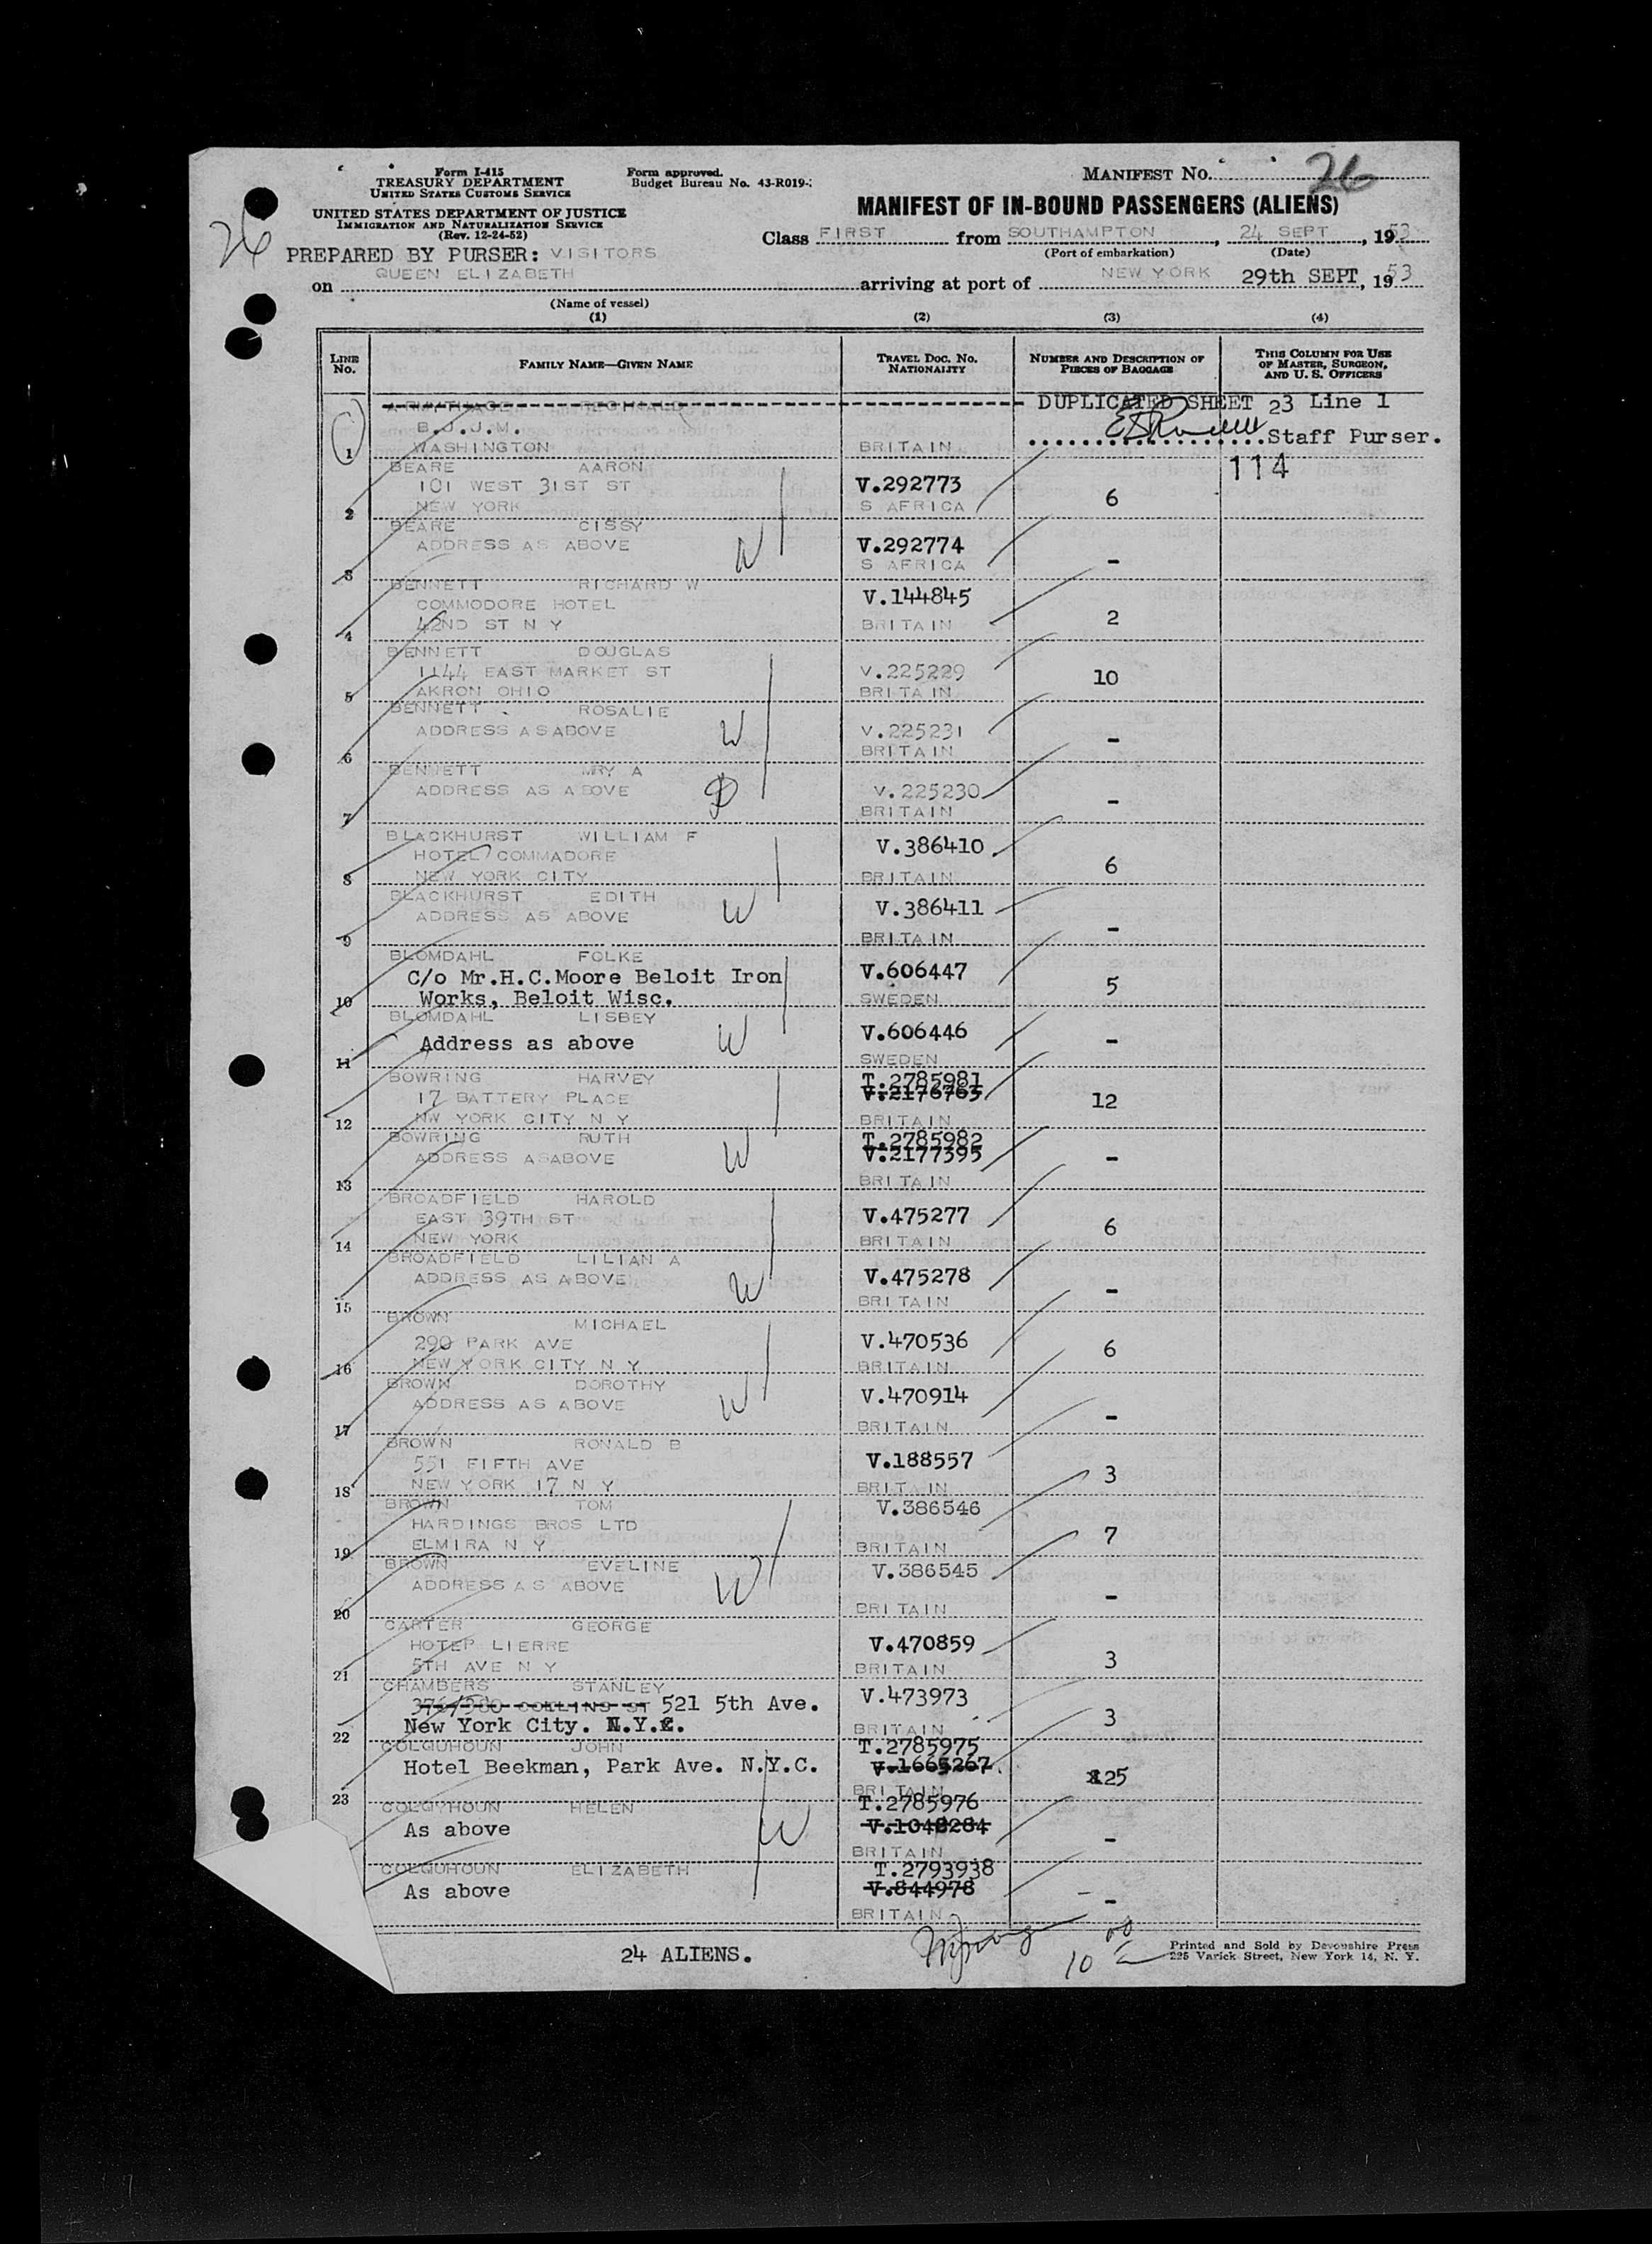 Form I-415
TREASURY DEPARTMENT
UNITED STATES CUSTOMS SERVICE
Form approved.
Budget Bureau No. 43-R019-
MANIFEST No. 26
26
UNITED STATES DEPARTMENT OF JUSTICE
IMMIGRATION AND NATURALIZATION SERVICE
(Rev. 12-24-52)
MANIFEST OF IN-BOUND PASSENGERS (ALIENS)
Class FIRST from SOUTHAMPTON, 24 SEPT, 1953
(Port of embarkation) (Date)
PREPARED BY PURSER: VISITORS
on QUEEN ELIZABETH arriving at port of NEW YORK 29th SEPT, 1953
(Name of vessel)
(1) (2) (3) (4)
LINE No. FAMILY NAME—GIVEN NAME TRAVEL DOC. No. NATIONALITY NUMBER AND DESCRIPTION OF PIECES OF BAGGAGE THIS COLUMN FOR USE OF MASTER, SURGEON, AND U. S. OFFICERS
ARMYTHAGE REGINALD DUPLICATED SHEET 23 Line 1
B.J.J.M. Staff Purser.
1 WASHINGTON BRITAIN
114
BEARE AARON
101 WEST 31ST ST V.292773 6
2 NEW YORK S AFRICA
BEARE CISSY
ADDRESS AS ABOVE W V.292774 -
3 S AFRICA
BENNETT RICHARD W V.144845
COMMODORE HOTEL 2
4 42ND ST N Y BRITAIN
BENNETT DOUGLAS
1144 EAST MARKET ST V.225229 10
5 AKRON OHIO BRITAIN
BENNETT ROSALIE
ADDRESS ASABOVE W V.225231 -
6 BRITAIN
BENNETT MRY A
ADDRESS AS ABOVE D V.225230 -
7 BRITAIN
BLACKHURST WILLIAM F V.386410
HOTEL COMMADORE 6
8 NEW YORK CITY BRITAIN
BLACKHURST EDITH
ADDRESS AS ABOVE W V.386411 -
9 BRITAIN
BLOMDAHL FOLKE
C/o Mr.H.C.Moore Beloit Iron V.606447 5
10 Works, Beloit Wisc. SWEDEN
BLOMDAHL LISBEY
Address as above W V.606446 -
11 SWEDEN
BOWRING HARVEY T.2785981
17 BATTERY PLACE V.2176763 12
12 NW YORK CITY N Y BRITAIN
BOWRING RUTH T.2785982
ADDRESS ASABOVE W V.2177395 -
13 BRITAIN
BROADFIELD HAROLD
EAST 39TH ST V.475277 6
14 NEW YORK BRITAIN
BROADFIELD LILIAN A
ADDRESS AS ABOVE W V.475278 -
15 BRITAIN
BROWN MICHAEL
290 PARK AVE V.470536 6
16 NEW YORK CITY N Y BRITAIN
BROWN DOROTHY
ADDRESS AS ABOVE W V.470914 -
17 BRITAIN
BROWN RONALD B
551 FIFTH AVE V.188557 3
18 NEW YORK 17 N Y BRITAIN
BROWN TOM V.386546
HARDINGS BROS LTD 7
19 ELMIRA N Y BRITAIN
BROWN EVELINE V.386545
ADDRESS AS ABOVE W -
20 BRITAIN
CARTER GEORGE
HOTEP LIERRE V.470859 3
21 5TH AVE N Y BRITAIN
CHAMBERS STANLEY V.473973
COLLINS ST 521 5th Ave. 3
22 New York City. N.Y.C. BRITAIN
COLQUHOUN JOHN T.2785975
Hotel Beekman, Park Ave. N.Y.C. V.1665267 125
23 BRITAIN
COLQYHOUN HELEN T.2785976
As above W V.1048284 -
BRITAIN
COLQUHOUN ELIZABETH T.2793938
As above V.844978 -
BRITAIN
24 ALIENS.
10 00
Printed and Sold by Devonshire Press
225 Varick Street, New York 14, N. Y.